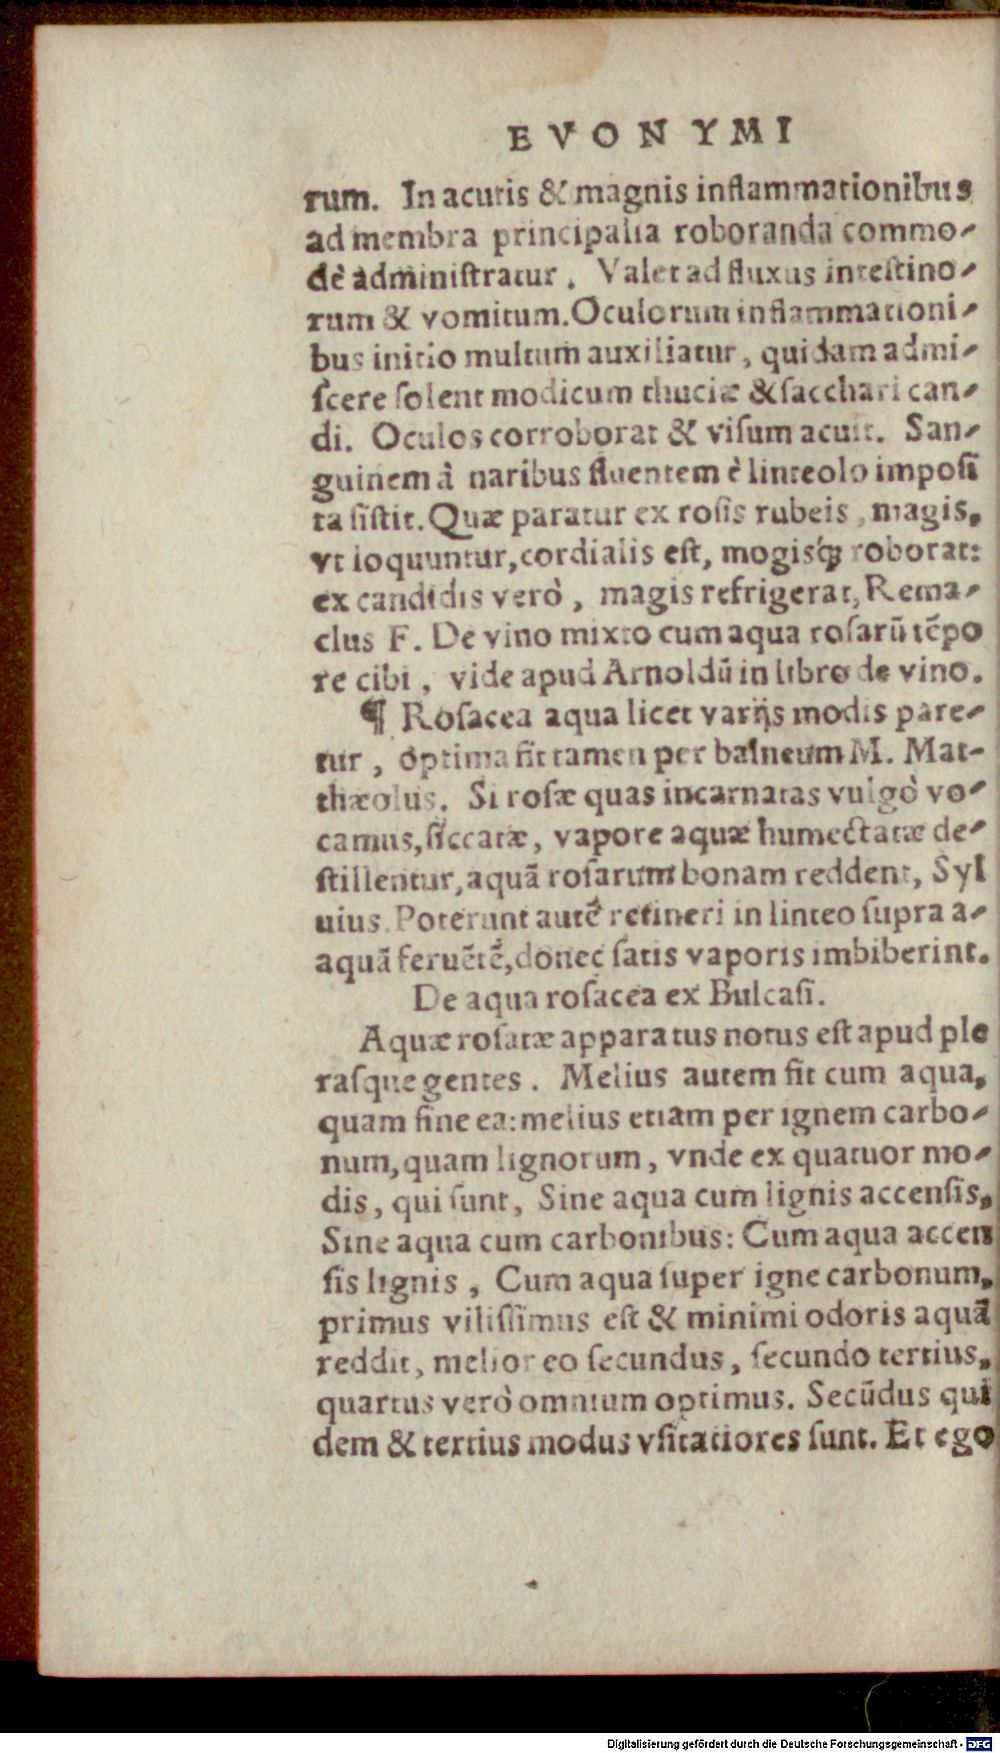 EVONYMI
rum. In acutis & magnis inflammationibus
ad membra principalia roboranda commo-
dè administratur. Valet ad fluxus intestino-
rum & vomitum. Oculorum inflammationi-
bus initio multum auxiliatur, quidam admi-
ſcere ſolent modicum thuciæ & ſacchari can-
di. Oculos corroborat & viſum acuit. San-
guinem à naribus fluentem è linteolo impoſi
ta ſiſtit. Quæ paratur ex roſis rubeis, magis,
vt loquuntur, cordialis eſt, mogisq́ꝫ roborat:
ex candidis verò, magis refrigerat, Rema-
clus F. De vino mixto cum aqua roſarũ tẽpo
re cibi, vide apud Arnoldũ in libro de vino.
¶ Roſacea aqua licet varijs modis pare-
tur, optima fit tamen per balneum M. Mat-
thæolus. Si roſæ quas incarnatas vulgò vo-
camus, ſiccatæ, vapore aquæ humectatæ de-
ſtillentur, aquã roſarum bonam reddent, Syl
uius. Poterunt autẽ retineri in linteo ſupra a-
aquã feruẽtẽ, donec ſatis vaporis imbiberint.
De aqua roſacea ex Bulcaſi.
Aquæ roſatæ apparatus notus eſt apud ple
raſque gentes. Melius autem fit cum aqua,
quam ſine ea: melius etiam per ignem carbo-
num, quam lignorum, vnde ex quatuor mo-
dis, qui ſunt, Sine aqua cum lignis accenſis,
Sine aqua cum carbonibus: Cum aqua accen
ſis lignis, Cum aqua ſuper igne carbonum,
primus viliſſimus eſt & minimi odoris aquã
reddit, melior eo ſecundus, ſecundo tertius,
quartus verò omnium optimus. Secũdus qui
dem & tertius modus vſitatiores ſunt. Et ego
Digitalisierung gefördert durch die Deutsche Forschungsgemeinschaft - DFG